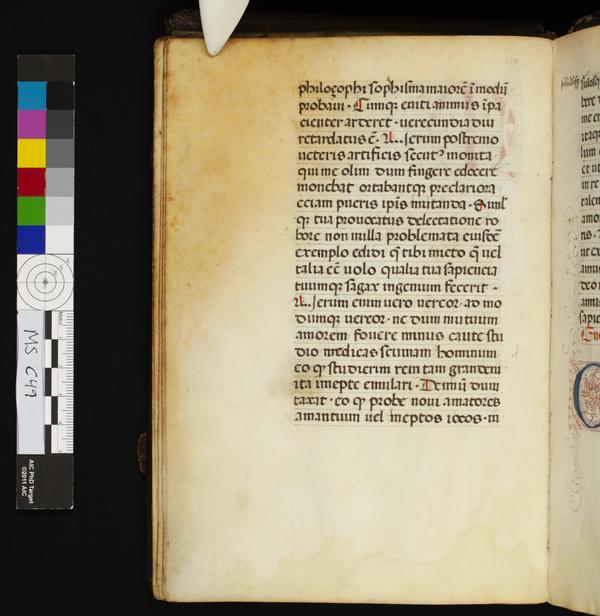 philoçophi sophisma maiorē ī modū
probaui · Cūmqꝫ eniti animus īpa
cienter arderet · uerecundia diu
retardatus ē · A... Ierum postremo
ueteris artificis secut⁹ monita
qui me olim dum fingere edocere
monebat ortabantqꝫ preclariora
eciam pueris ipīs mutanda · Simł
qꝫ tua prouocatus delectatione ro
bore non nulla problemata eiusdē
exemplo edidi q̄ tibi micto q̄ uel
talia eē uolo qualia tua sapiencia
tuumqꝫ sagax ingenium fecerit ·
A... Ierum enim uero uereor · ad mo
dumqꝫ uereor · ne dum mutuum
amorem fouere minus caute stu
dio medicas sciuiam hominum
eo qꝫ studierim rem tam grandem
ita inepte emulari · Deimū dum
taxat · eo qꝫ probe noui amatores
amantium uel ineptos iocos · in
MS C49
AIC PhD Target
©2011 AIC